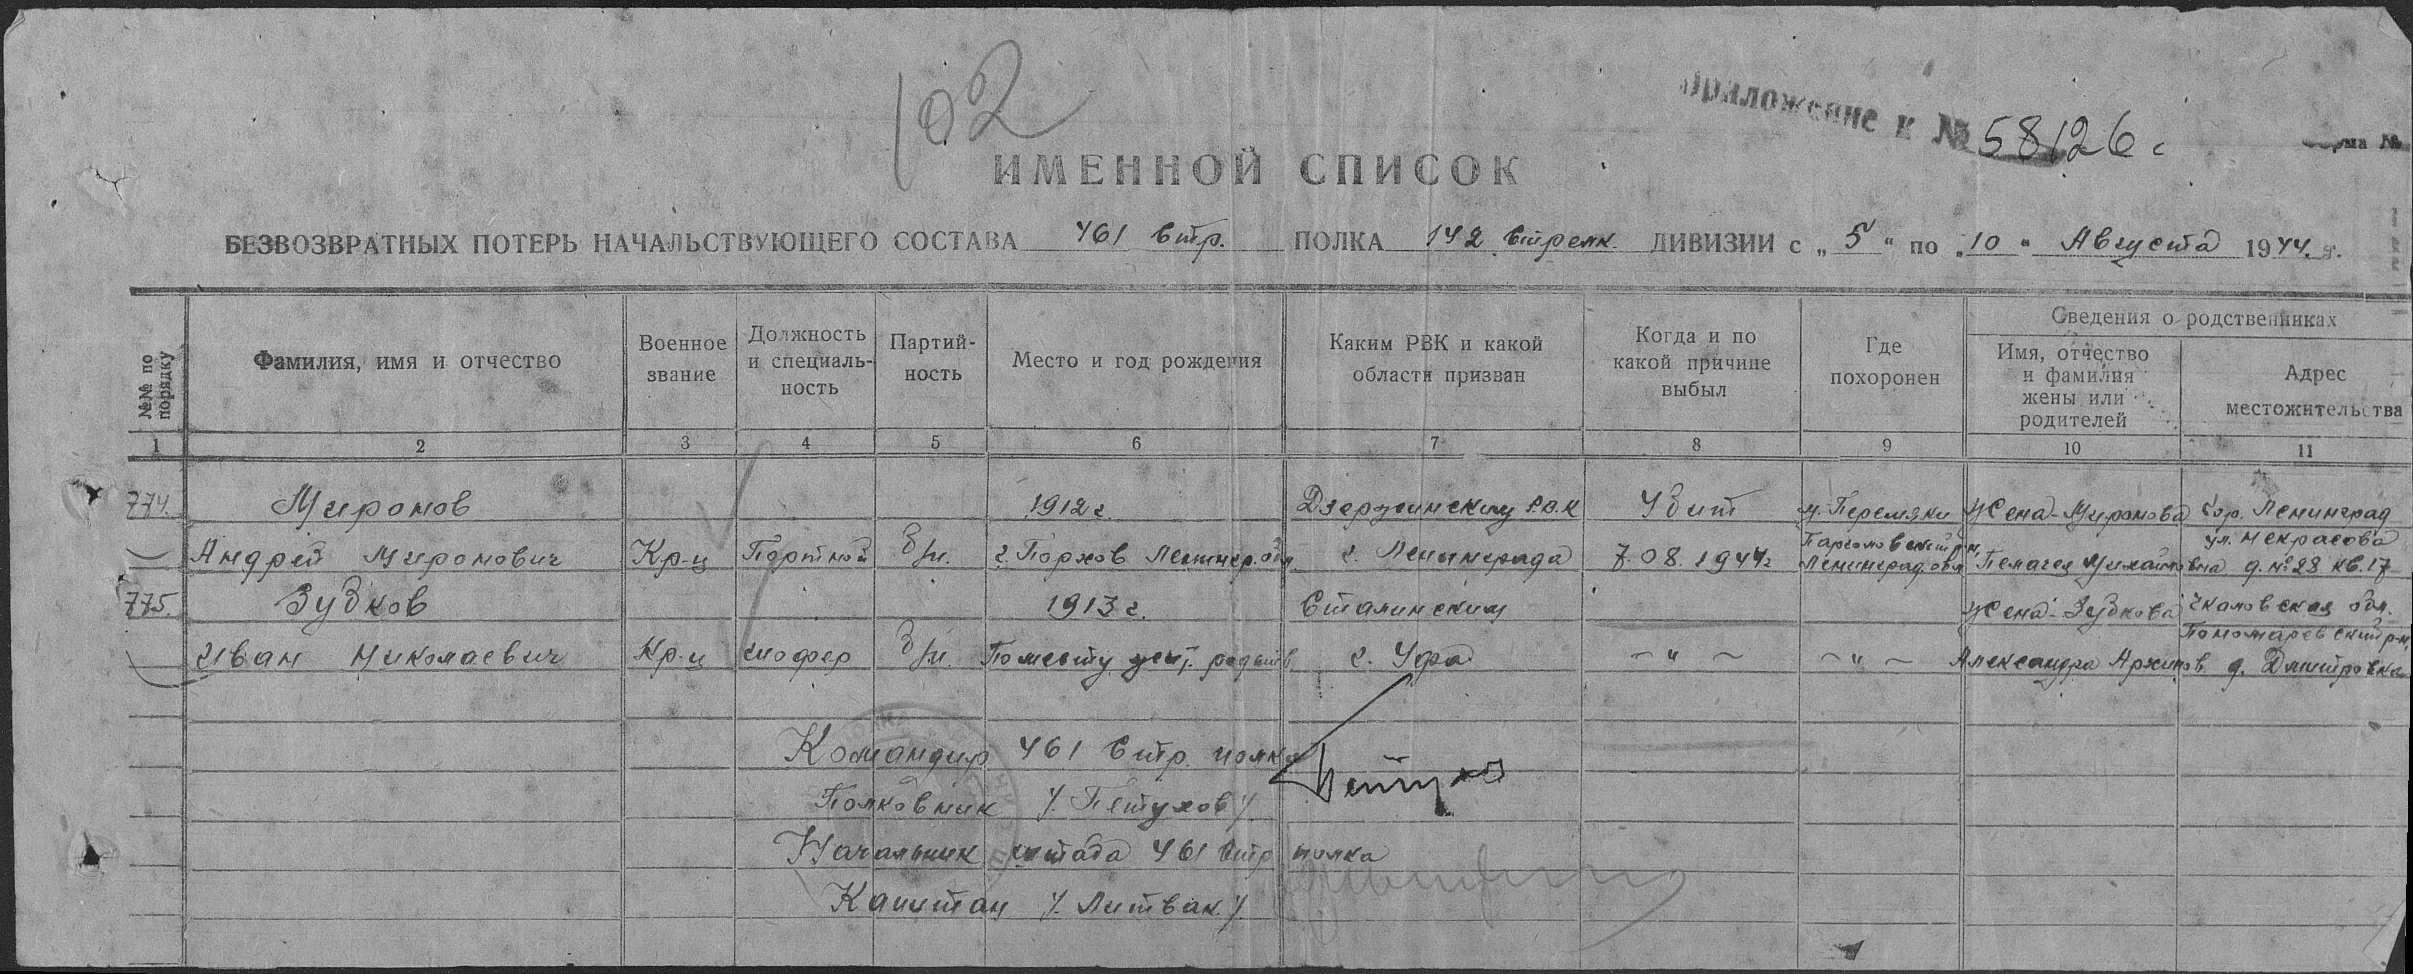 102
Приложение к № 58126с
ИМЕННОЙ СПИСОК
БЕЗВОЗВРАТНЫХ ПОТЕРЬ НАЧАЛЬСТВУЮЩЕГО СОСТАВА 461 стр. ПОЛКА 142 стрелк. ДИВИЗИИ с „5" по „10" Августа 1944 г.
№№ по порядку
Фамилия, имя и отчество
Военное звание
Должность и специаль-ность
Партий-ность
Место и год рождения
Каким РВК и какой области призван
Когда и по какой причине выбыл
Где похоронен
Сведения о родственниках
Имя, отчество и фамилия жены или родителей
Адрес местожительства
1 2 3 4 5 6 7 8 9 10 11
774. Миронов 1912 г. Дзержинским РВК Убит Жена-Миронова гор. Ленинград
ул. Некрасова
Андрей Миронович Кр-ц Портной б/п. г. Порхов Ленингр. обл г. Ленинграда 7.08.1944 г Ленинград. обл Пелагея Михайловна д. № 28 кв. 17
775. Зубков 1913 г. Сталинским Жена-Зубкова Чкаловская обл.
Пономаревский р-н,
Иван Николаевич Кр-ц шофер б/п. По месту жит. родств. г. Уфа — " — — " — Александра Архипов д. Дмитровка
Командир 461 Стр. полка
Полковник /. Петухов /
Начальник штаба 461 Стр полка
Капитан /. Литвак /